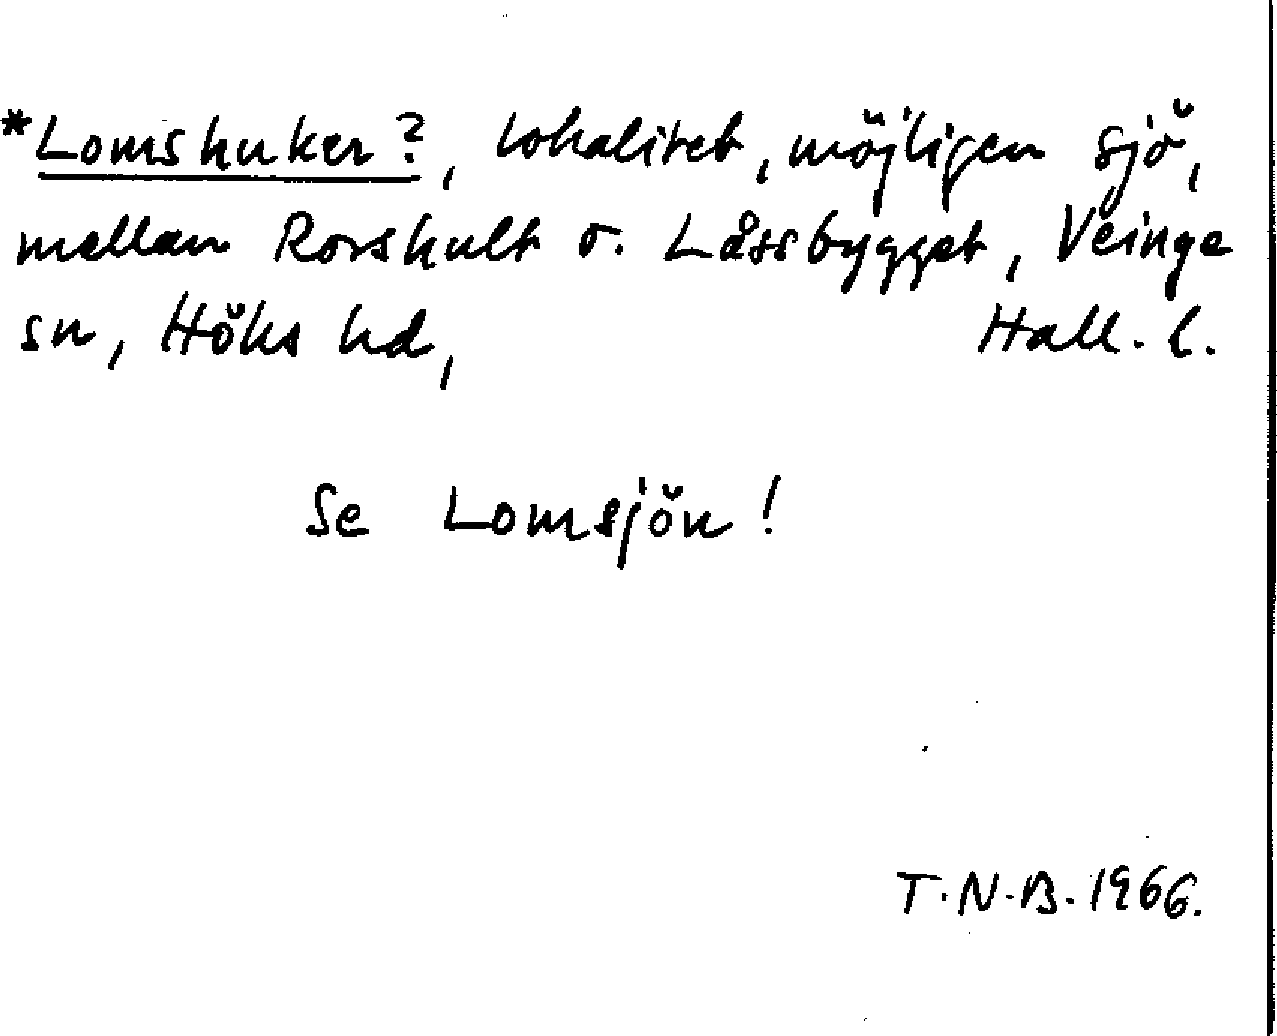 *Lomshuker?, lokalitet, möjligen sjö,
mellan Rorshult o. Låssbygget, Veinge
sn, Höks hd, Hall. l.
Se Lomsjön!
T.N.B. 1966.